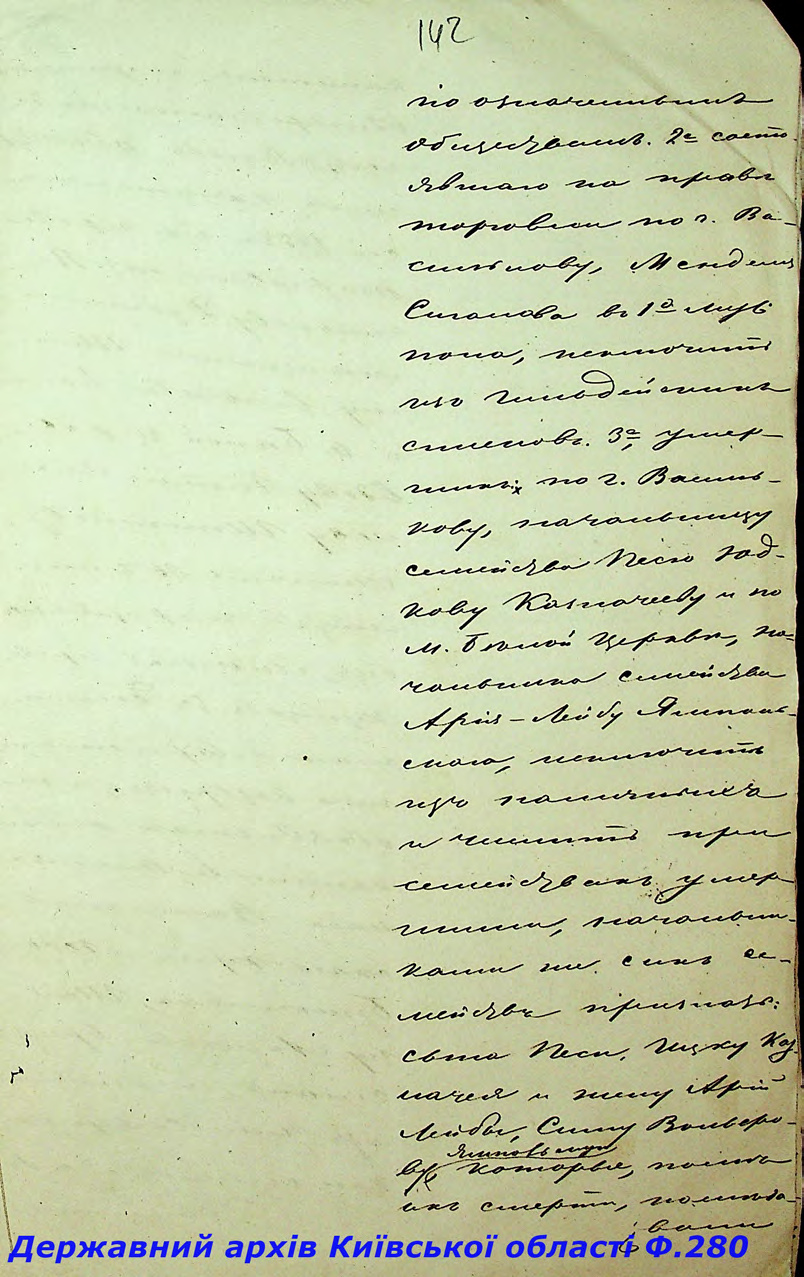 142
по означеннымъ
обществамъ. 2е состо
явшаго на правѣ
торговли по г. Ва-
силькову, Менделя
Сиганова въ 1й
исключить
изъ
3е, умер-
шихъ по г. Василь-
кову, начальницу
семейства Песю Юд-
кову Казначееву и по
м. Бѣлой Церкви, на-
чальника семейства
Арія-Лейбу Ямполь-
скаго, исключить
изъ наличныхъ
и числить при
семействахъ умер
шими, начальни-
ками же сихъ се-
мействъ признать:
Песи, Ицку Каз
начея и жену Арія
Лейбы, Симу Вольфо-
ву Ямпольскую которые, послѣ
ихъ смерти,
Державний архів Київської області Ф.280